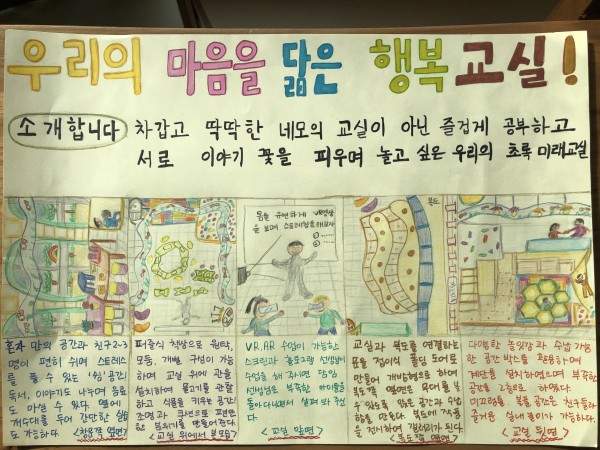 우리의 마음을 닮은 행복 교실!
소개합니다
차갑고 딱딱한 네모의 교실이 아닌 즐겁게 공부하고
서로 이야기 꽃을 피우며 놀고 싶은 우리의 초록 미래교실
몸을 유연하게 VR영상
을 보며 스트레칭을 해보자
복도
혼자 만의 공간과 친구 2-3
명이 편히 쉬며 스트레스
를 풀 수 있는 '쉼' 공간!
독서, 이야기도 나누며 음료
도 마실 수 있다. 옆에
개수대를 두어 간단한
도 가능하다. <창문쪽 옆면>
퍼즐식 책상으로 원탁,
모둠, 개별 구성이 가능
하며 교실 위에 관을
설치하여 물고기를 관찰
하고 식물을 키우는 공간!
조명과 쿠션으로 편안
한 분위기를 만들어준다.
<교실 위에서 본 모습>
V.R, A.R 수업이 가능한
스크린과 홀로그램 선생님이
수업을 해 주시면 담임
선생님은 부족한 아이들을
돌아다니면서 살펴 봐 주신
다.
<교실 앞면>
교실과 복도를 연결하는
문을 접이식 폴딩 도어로
만들어 개방형으로 하여
복도쪽 옆면으로
수 있도록 많은 공간과 수업
함을 만든다. 복도에 작품
을 전시하여 갤러리가 된다.
<복도쪽 옆면>
다양한 놀잇감과 수납 가능
한 공간 박스를 활용하여
계단을 설치하였으며 부족한
공간을 2층으로 하였다.
미끄럼틀, 볼풀 공간은 친구들과
즐거운 실내 놀이가 가능하다.
<교실 뒷면>